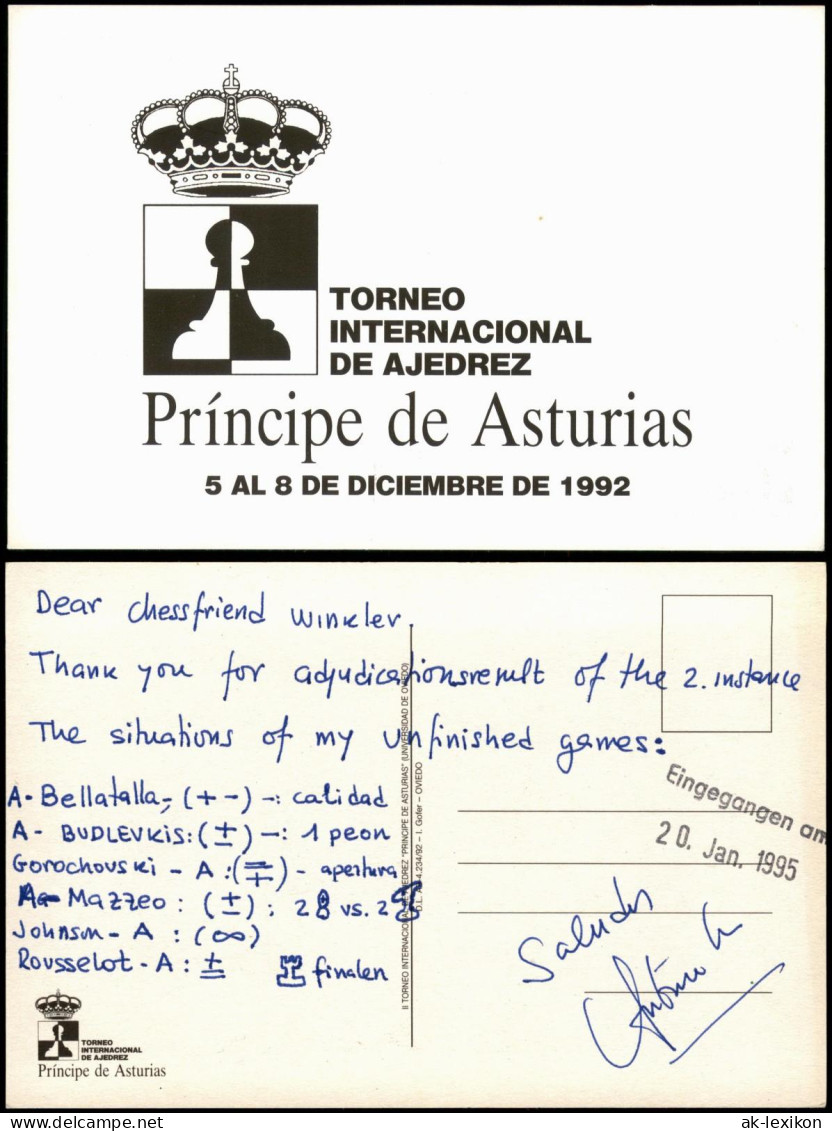 TORNEO
INTERNACIONAL
DE AJEDREZ
Príncipe de Asturias
5 AL 8 DE DICIEMBRE DE 1992
Dear chessfriend Winkler.
Thank you for adjudicationsresult of the 2. instance
The situations of my unfinished games:
A- Bellatalla; (+-) -: calidad
A- BUDLEVKIS: (±) -: 1 peon
Gorochovski - A : (∓) - apertura
A- Mazzeo: (±): 2 ♗ vs. 2 ♘
Johnson - A : (∞)
Rousselot - A : ± ♖ finalen
II TORNEO INTERNACIONAL DE AJEDREZ "PRINCIPE DE ASTURIAS" (UNIVERSIDAD DE OVIEDO)
D.L. AS-4.234/92 – I. Gofer – OVIEDO
Eingegangen am
20. Jan. 1995
Saludos
António
TORNEO
INTERNACIONAL
DE AJEDREZ
Príncipe de Asturias
ak-lexikon